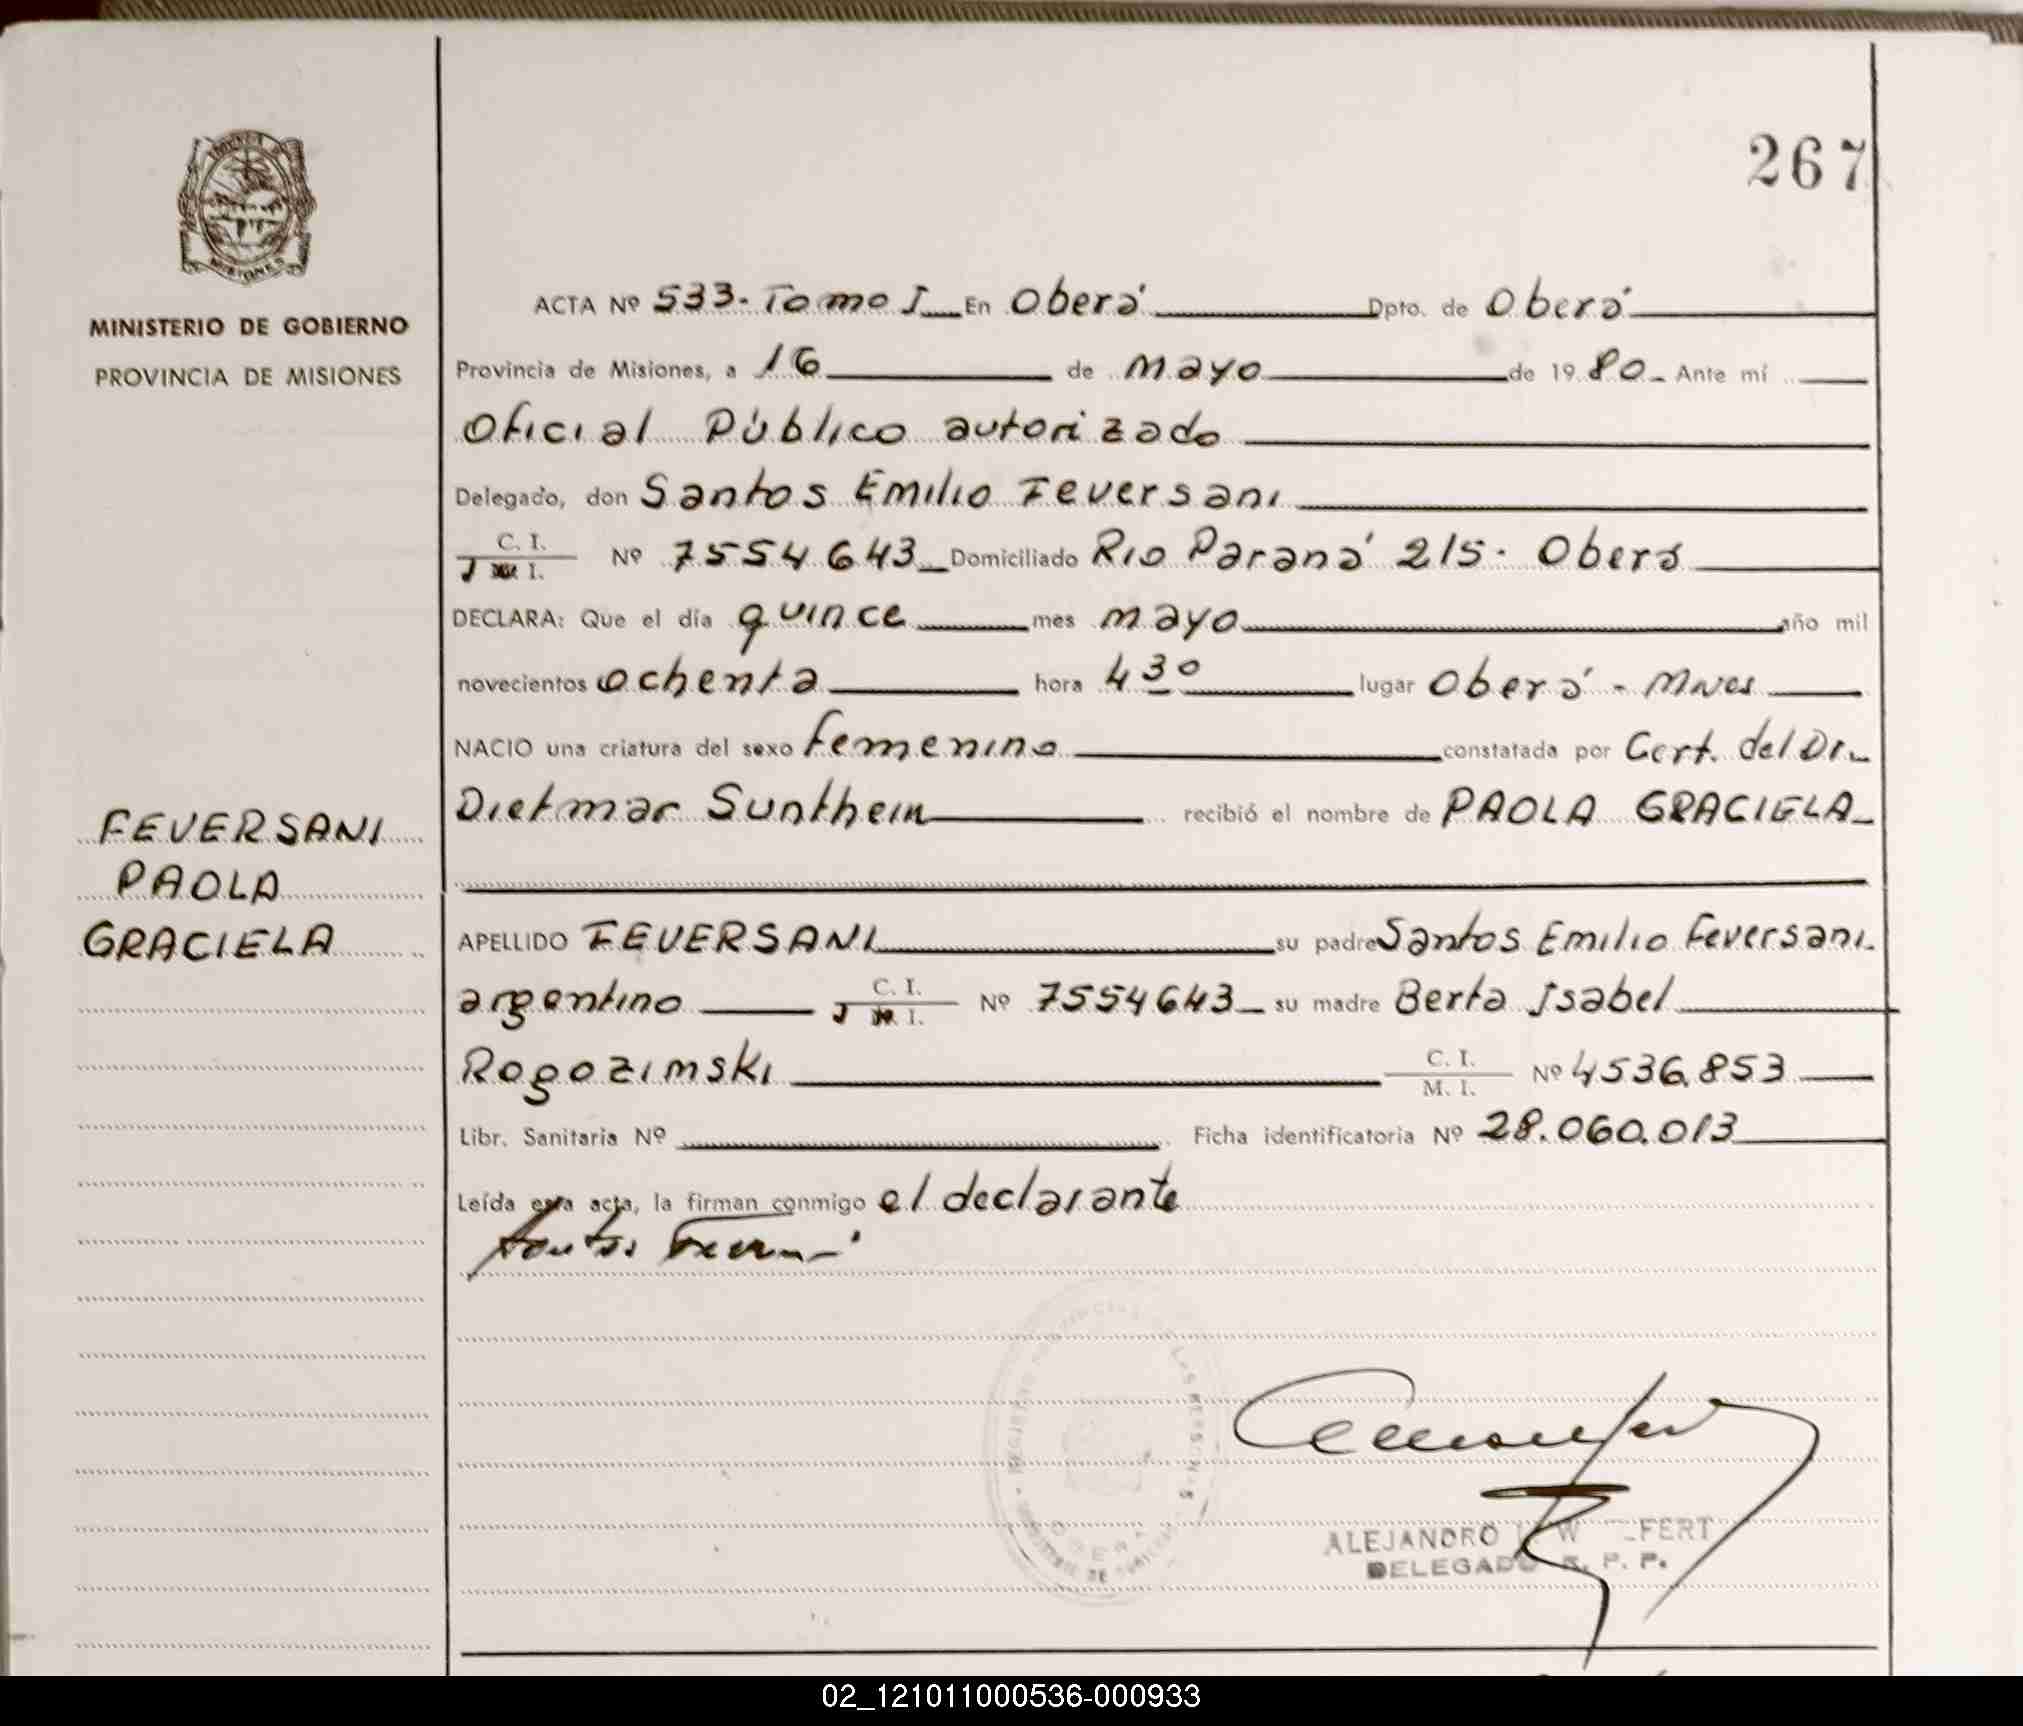 267
MISIONES
MINISTERIO DE GOBIERNO
PROVINCIA DE MISIONES
ACTA Nº 533. Tomo I En Oberá Dpto. de Oberá
Provincia de Misiones, a 16 de mayo de 1980 Ante mí
Oficial Público autorizado
Delegado, don Santos Emilio Feversani
C. I. Nº 7554643 Domiciliado Rio Paraná 215. Oberá
I.
DECLARA: Que el día quince mes mayo año mil
novecientos ochenta hora 4 30 lugar Oberá - Mnes
NACIO una criatura del sexo femenino constatada por Cert. del Dr.
Dietmar Sunthein recibió el nombre de PAOLA GRACIELA
FEVERSANI
PAOLA
GRACIELA
APELLIDO FEVERSANI su padre Santos Emilio Feversani.
argentino C. I. Nº 7554643 su madre Berta Isabel
I.
Rogozimski C. I. Nº 4536.853
M. I.
Libr. Sanitaria Nº Ficha identificatoria Nº 28.060.013
Leída esta acta, la firman conmigo el declarante
Santos
ALEJANDRO
DELEGADO R. P. P.
02_121011000536-000933